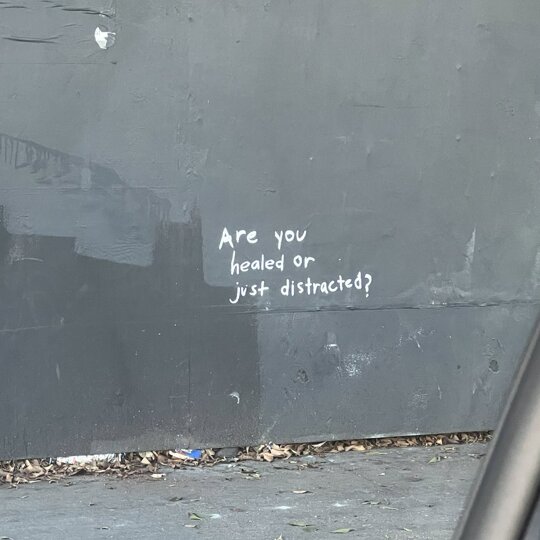 Are you
healed or
just distracted?